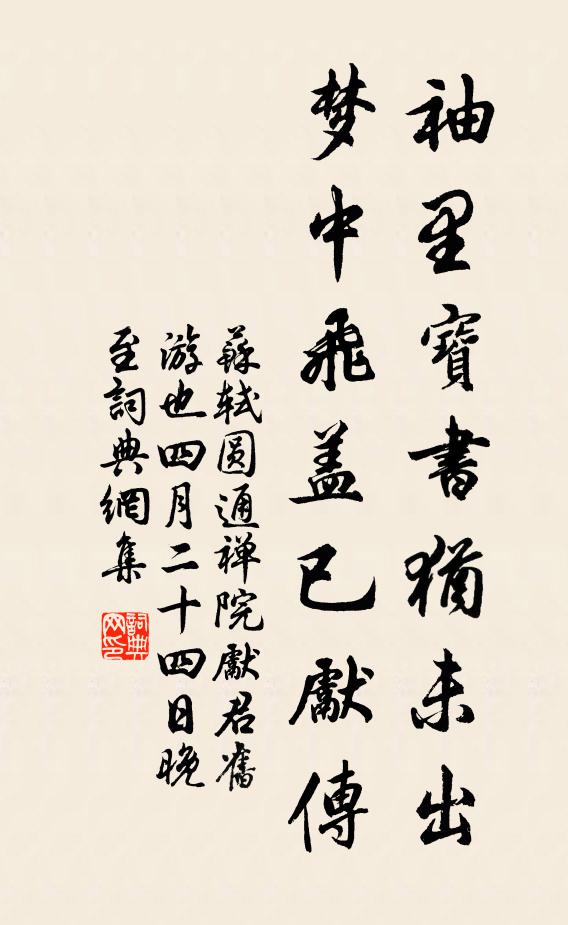 袖里寶書猶未出
梦中飛盖已獻傳
蘇軾圓通禅院獻君舊
游也四月二十四日晚
至詞典網集
詞典
网印